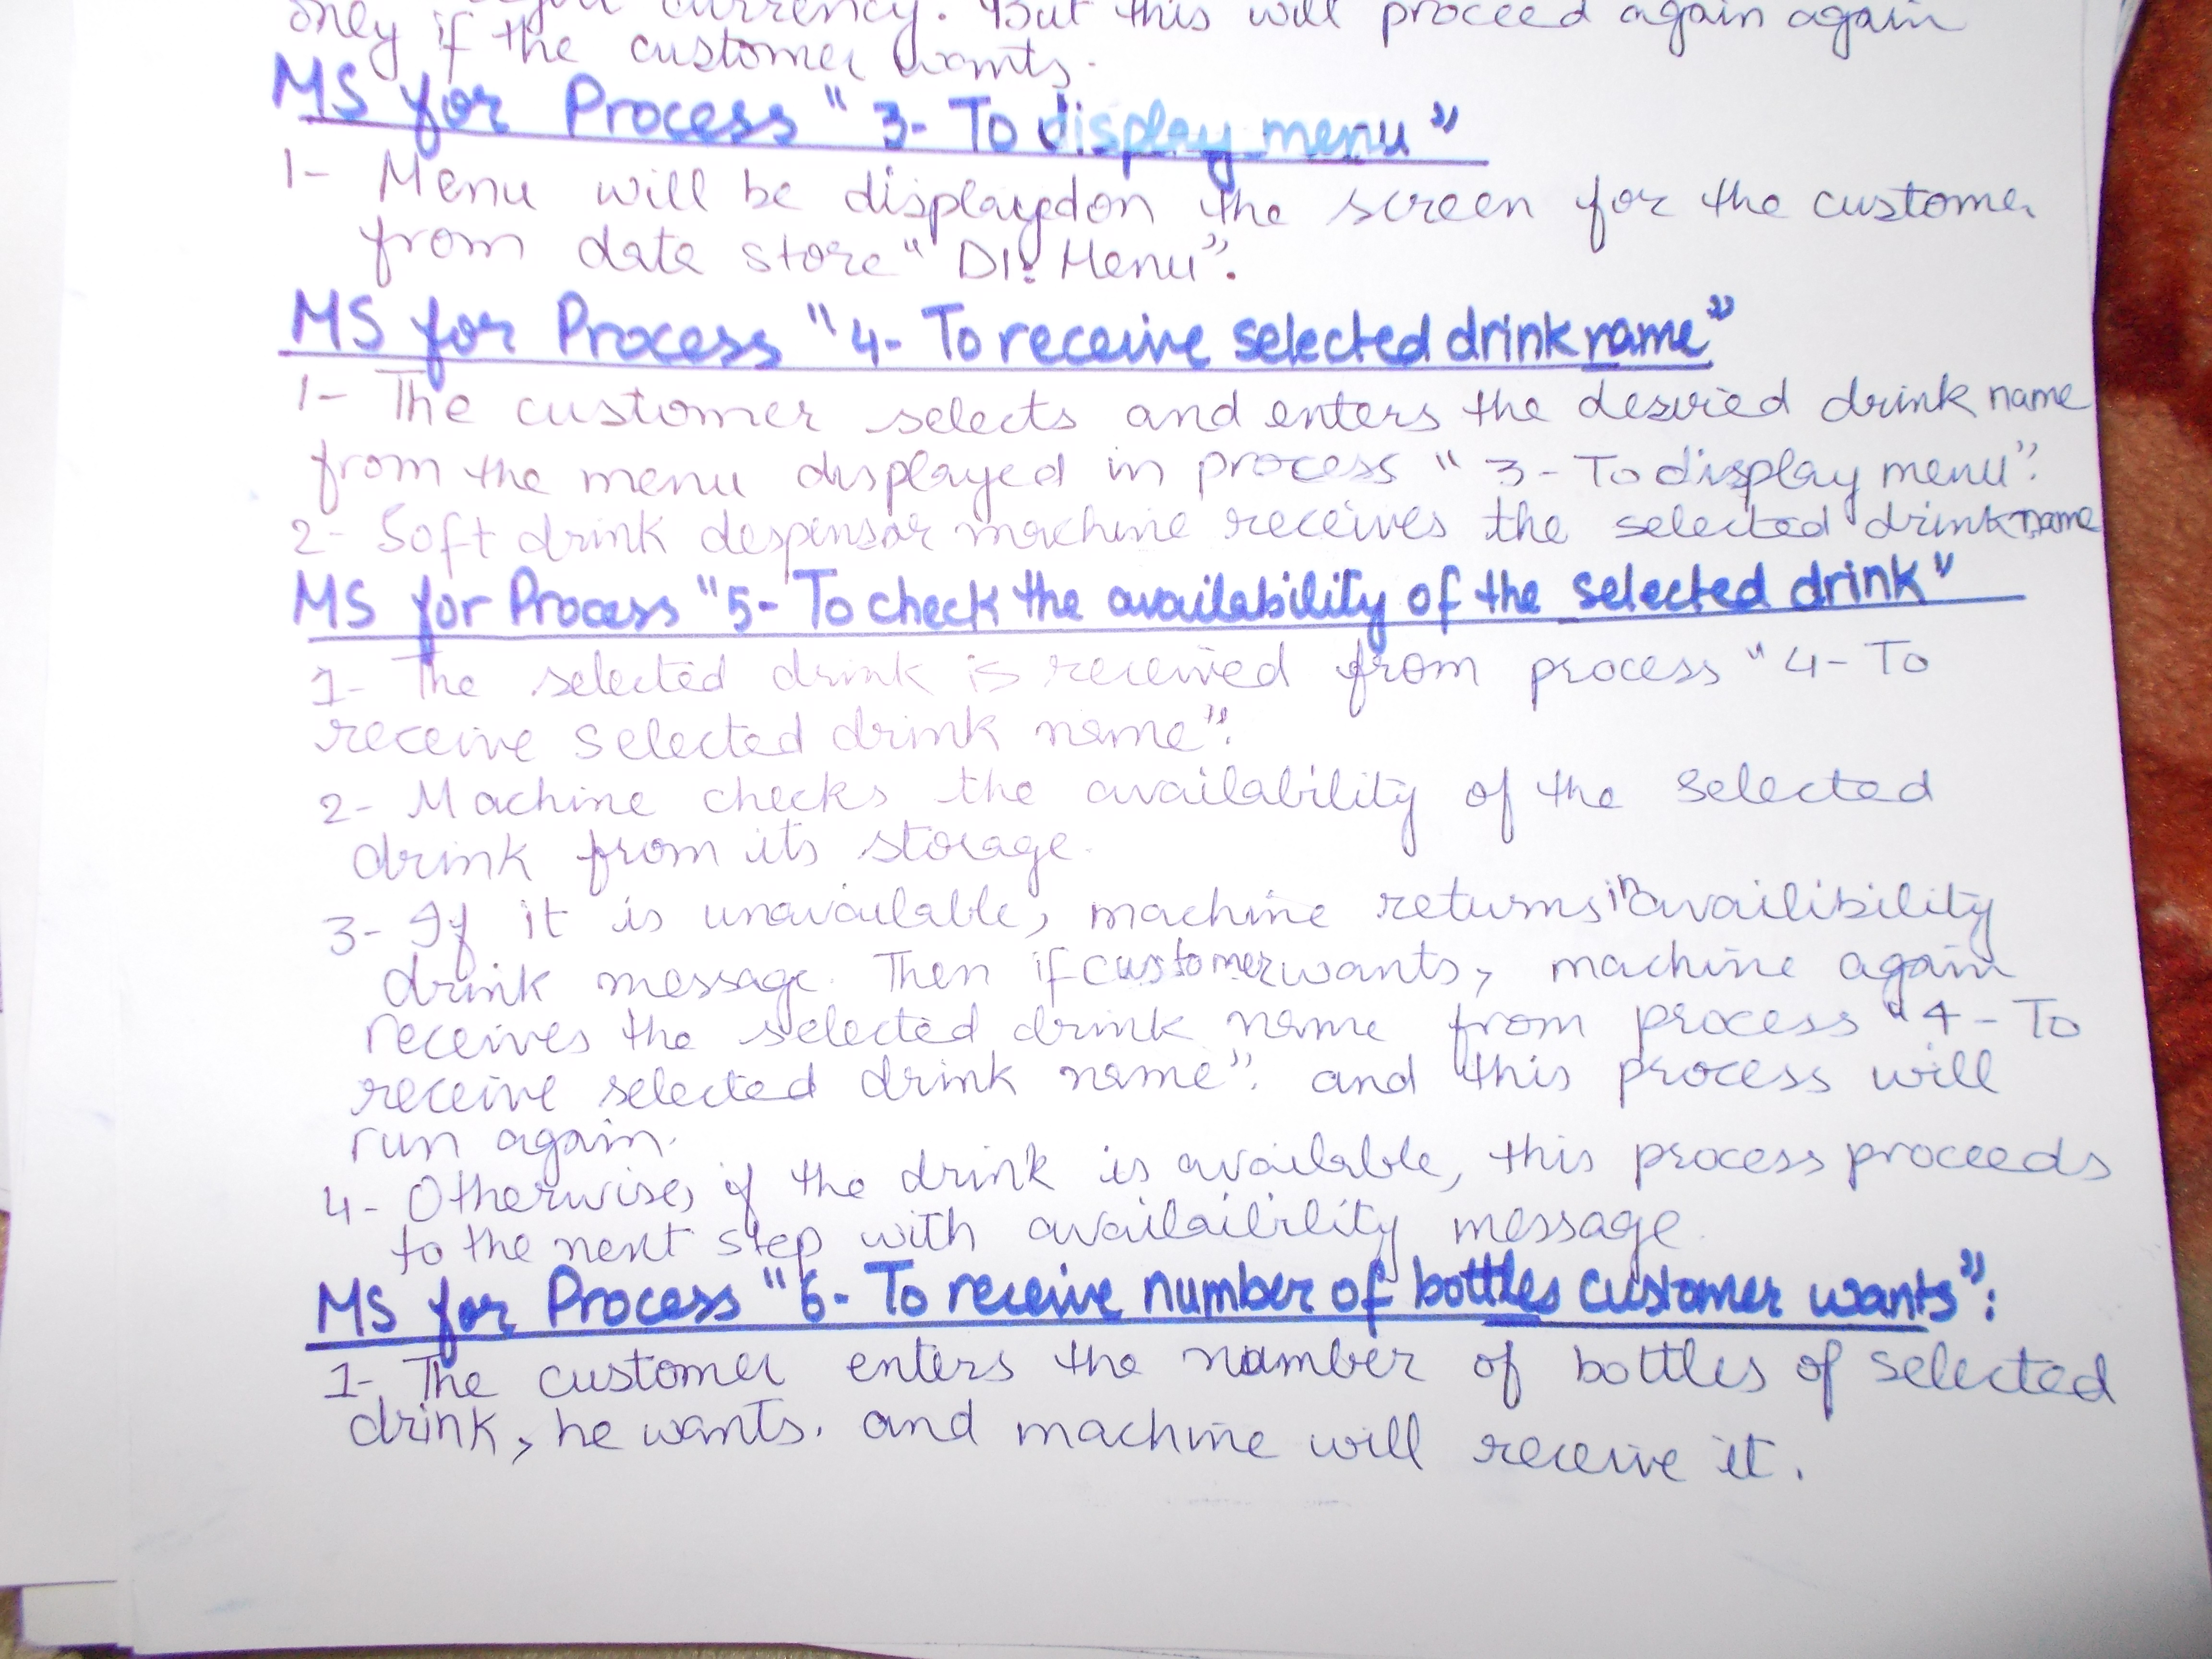 currency. But this will proceed again again
only if the customer wants.
MS for Process "3- To display menu"
1- Menu will be displayed on the screen for the customer
from data store "D1: Menu".
MS for Process "4- To receive selected drink name"
1- The customer selects and enters the desired drink name
from the menu displayed in process "3- To display menu".
2- Soft drink despensor machine receives the selected drink name
MS for Process "5- To check the availability of the selected drink"
1- The selected drink is received from process "4- To
receive selected drink name".
2- Machine checks the availability of the selected
drink from its storage.
3- If it is unavailable, machine returns inavailibility
drink message. Then if customer wants, machine again
receives the selected drink name from process "4- To
receive selected drink name". and this process will
run again.
4- Otherwise, if the drink is available, this process proceeds
to the next step with availability message.
MS for Process "6- To receive number of bottles customer wants":
1- The customer enters the number of bottles of selected
drink, he wants. and machine will receive it.